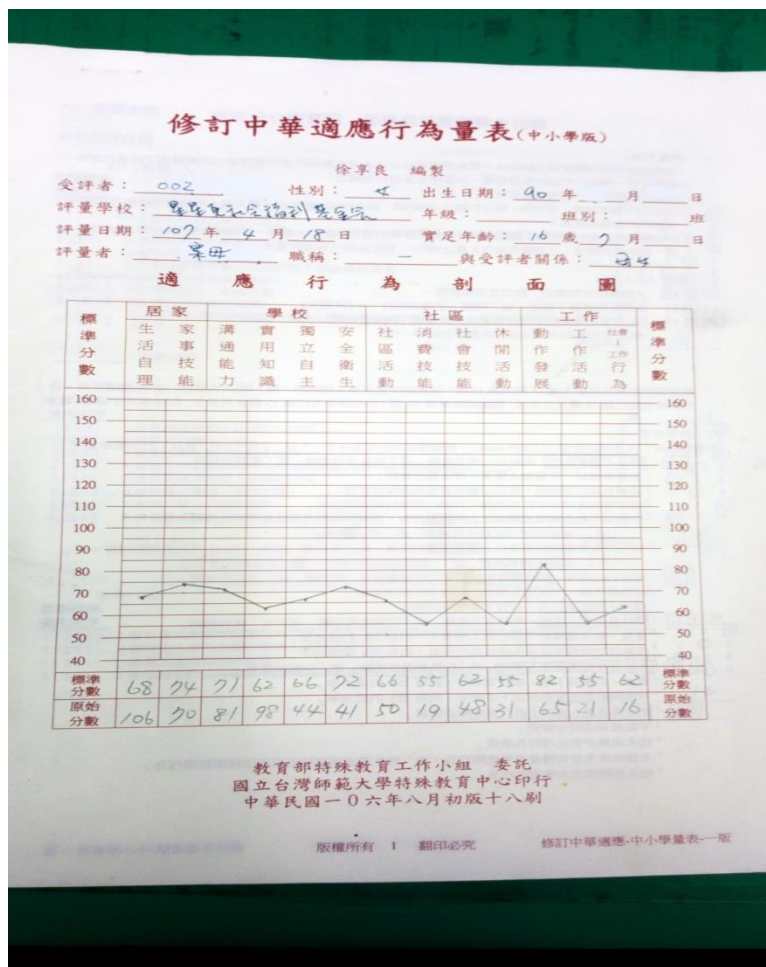 修訂中華適應行為量表(中小學版)
徐享良 編製
受評者： 002 性別： 女 出生日期： 90 年 月 日
評量學校： 星星兒社會福利基金會 年級： 班別： 班
評量日期： 107 年 4 月 18 日 實足年齡： 16 歲 7 月 日
評量者： 案母 職稱： 一 與受評者關係：
適應行為剖面圖
標準分數 居家 學校 社區 工作 標準分數
生活自理 家事技能 溝通能力 實用知識 獨立自主 安全衛生 社區活動 消費技能 社會技能 休閒活動 動作發展 工作活動 社會-工作行為
160 160
150 150
140 140
130 130
120 120
110 110
100 100
90 90
80 80
70 70
60 60
50 50
40 40
標準分數 68 74 71 62 66 72 66 55 62 55 82 55 62 標準分數
原始分數 106 70 81 98 44 41 50 19 48 31 65 21 16 原始分數
教育部特殊教育工作小組 委託
國立台灣師範大學特殊教育中心印行
中華民國一0六年八月初版十八刷
版權所有 1 翻印必究 修訂中華適應-中小學量表-一版